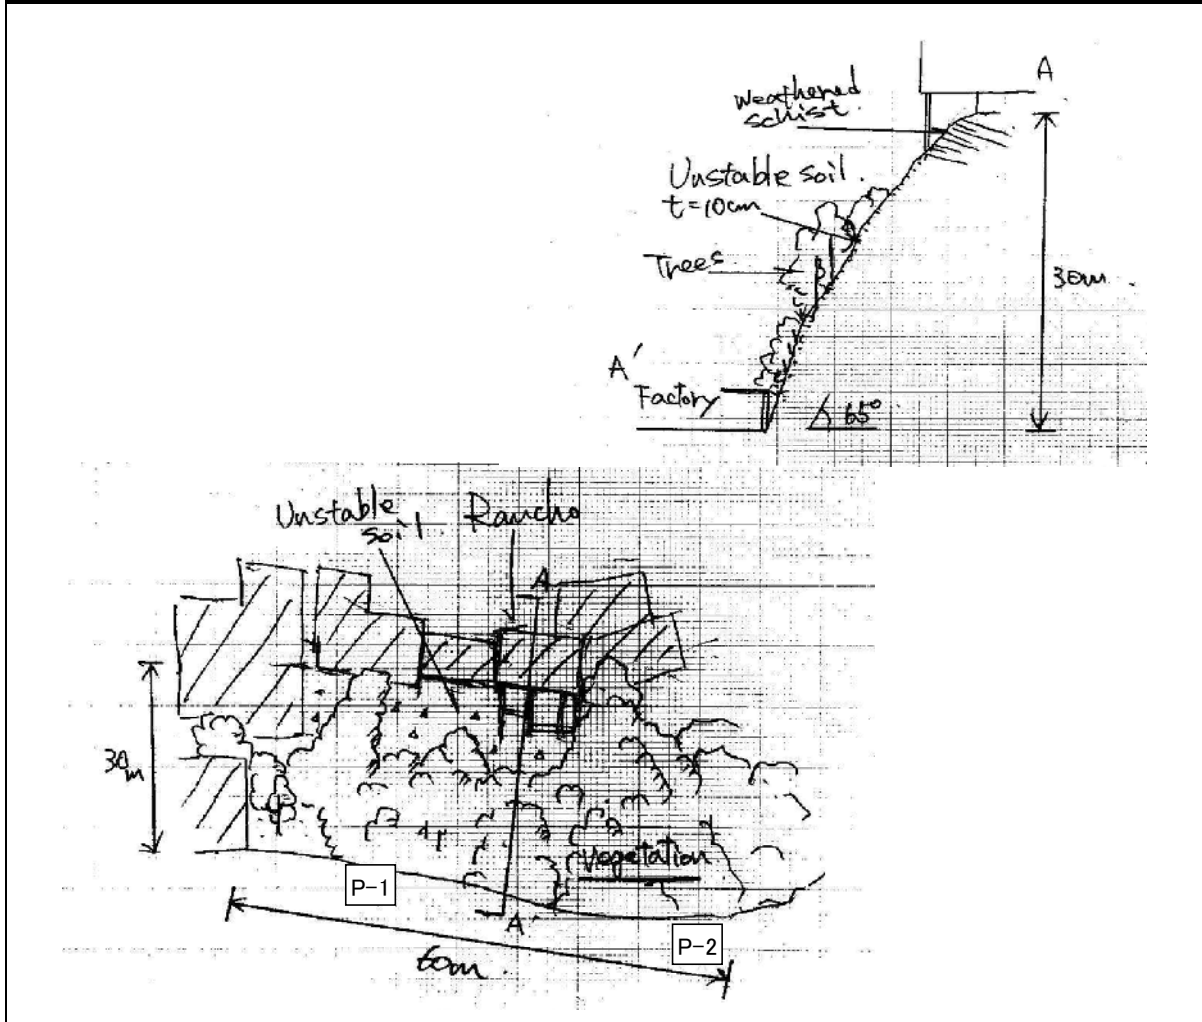 A
Weathered
schist.
Unstable soil.
t=10cm
Trees
30m.
A'
Factory
65°
Unstable
soil.
Rancho
A
30m
Vegetation
P-1
A'
P-2
60m.